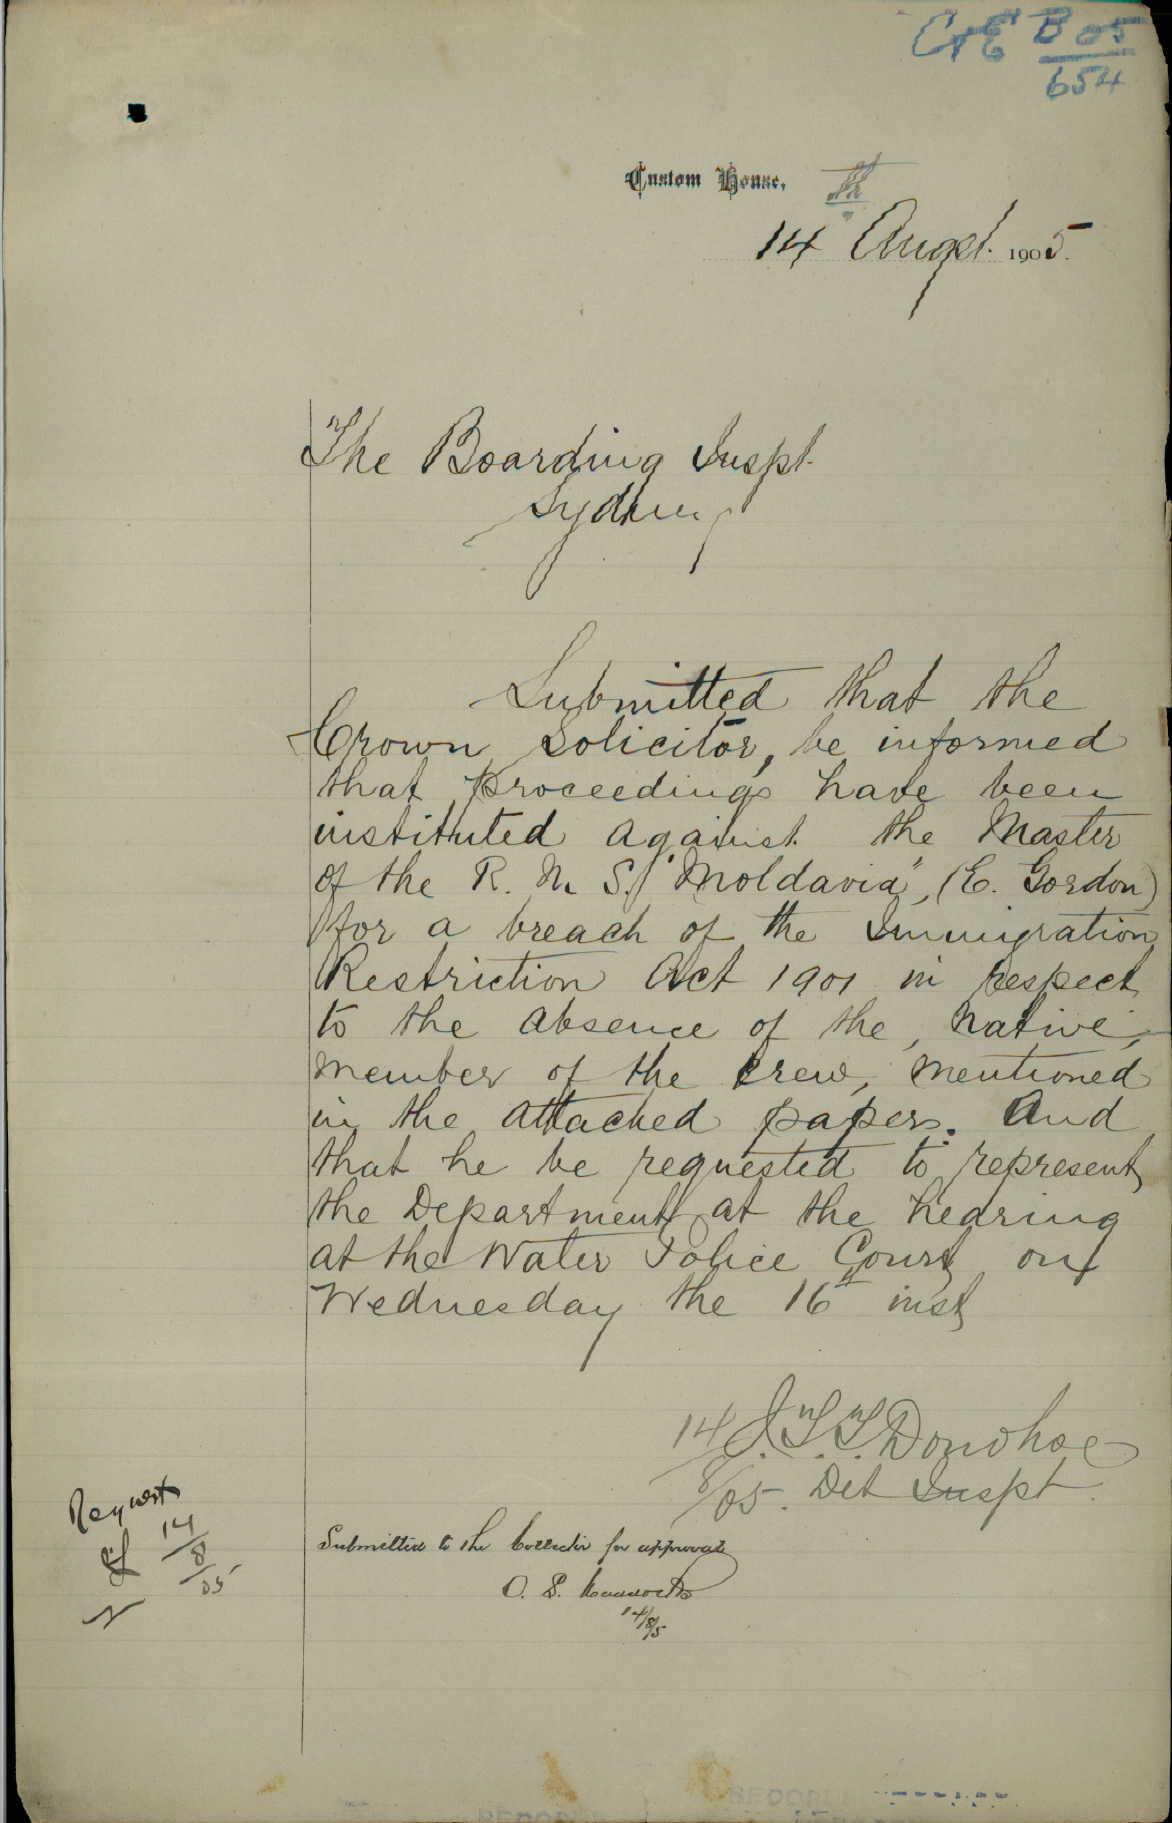 C&E B 05
654
Custom House,
14 Augst. 1905.
The Boarding Inspt.
Sydney
Submitted that the
Crown Solicitor, be informed
that proceedings have been
instituted against. the Master
of the R. M. S. "Moldavia", (E. Gordon)
for a breach of the Immigration
Restriction Act 1901 in respect
to the absence of the, native,
member of the crew, mentioned
in the attached papers. And
that he be requested to represent
the Department at the hearing
at the Water Police Court on
Wednesday the 16th inst
14/8/05. J. T. T. Donohoe
Det Inspt.
Request
14
8
05
Submitted to the Collector for approval
14/8/5